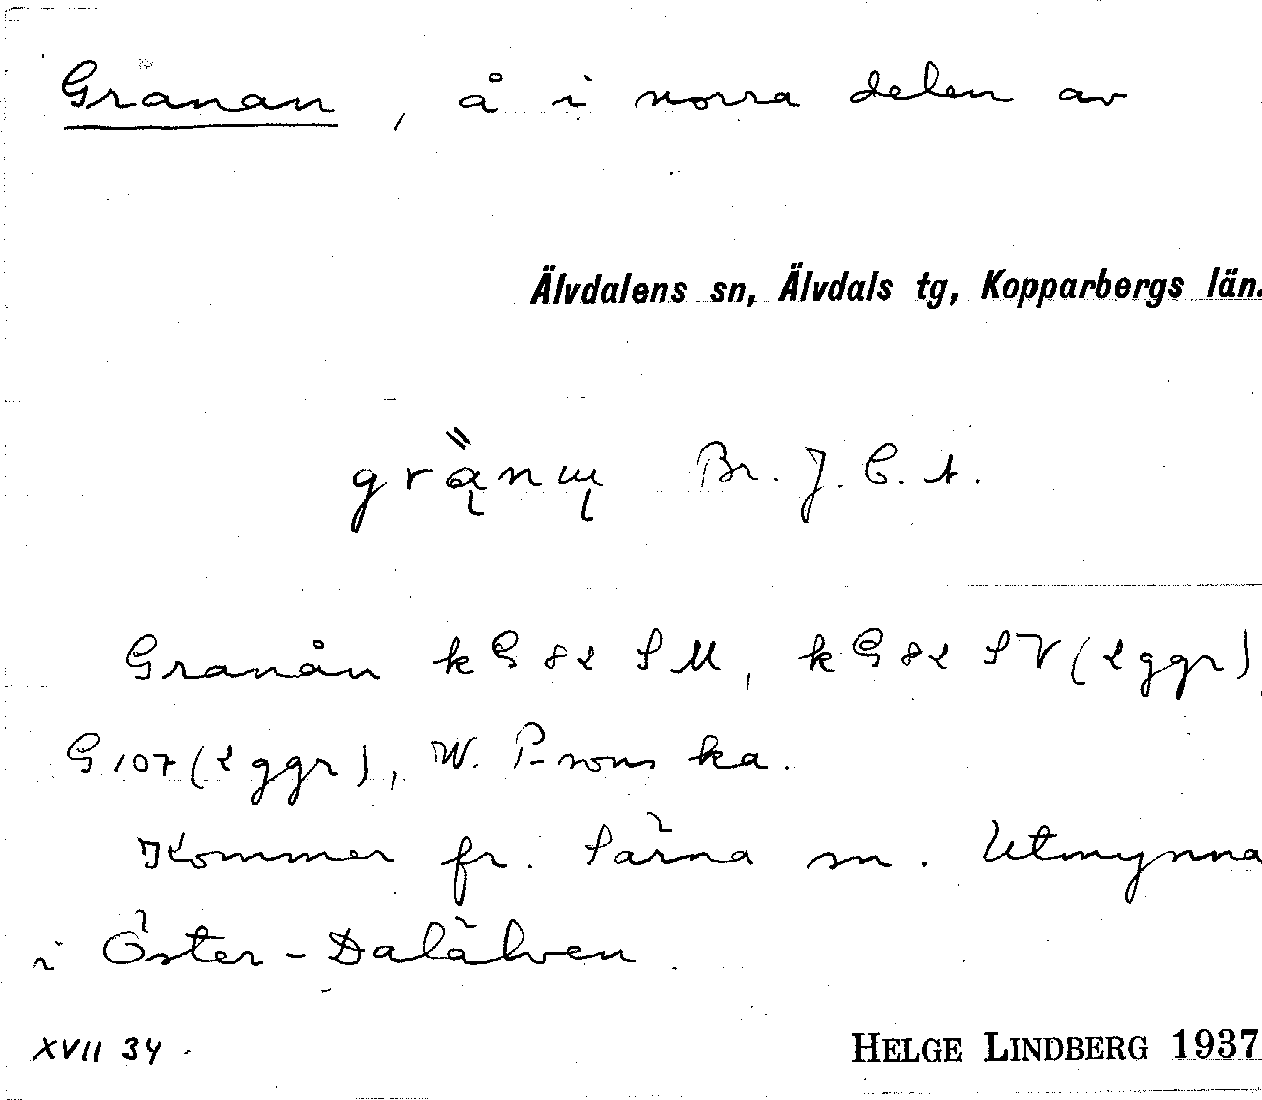 Granan, å i norra delen av
Älvdalens sn, Älvdals tg, Kopparbergs län.
Br. J. E. A.
Granån kG 82 SM, kG 82 SV (2 ggr)
G 107 (2 ggr), W. P-rons ka.
Kommer fr. Särna sn. Utmynna
i Öster-Dalälven.
XVII 34
HELGE LINDBERG 1937